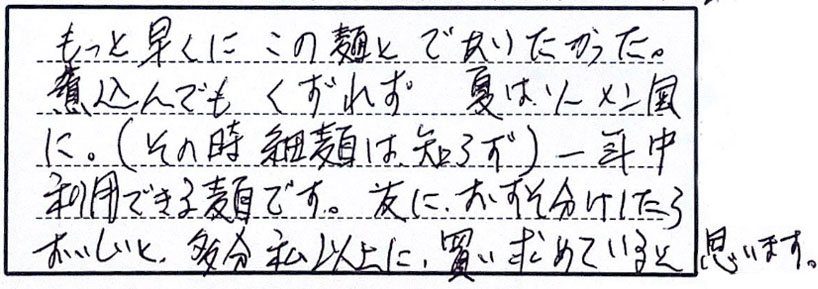 もっと早くに この麺と であいたかった。
煮込んでも くずれず 夏はソーメン風
に。(その時 細麺は、知らず) 一年中
利用できる麺です。友に、おすそ分けしたら
おいしいと、多分私以上に、買い求めていると思います。